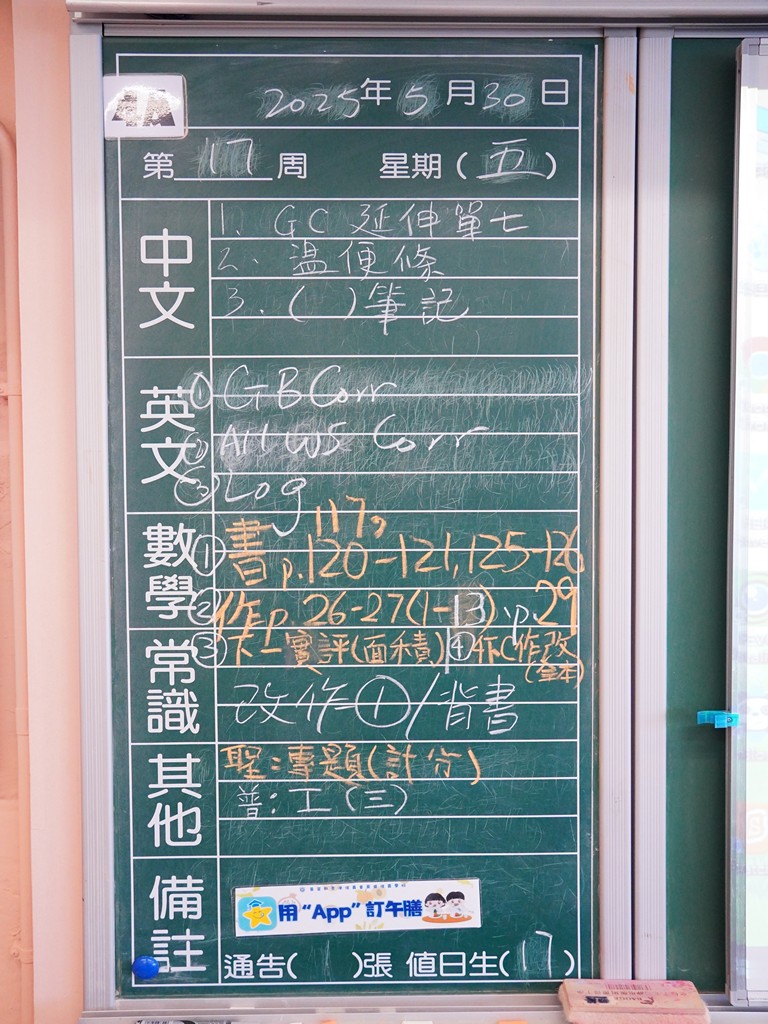 4A
2025年5月30日
第17周 星期(五)
中文
1. GC 延伸單七
2. 溫便條
3. ( )筆記
英文
① GB Corr
② All WS Corr
③ Log
數學
117,
① 書 p.120-121, 125-126
② 作p. 26-27(1-13), p.29
③ 下一實評(面積) ④ 作(作改
(全本)
常識
改作①/背書
其他
聖:專題(計分)
普:工(三)
備註
用“App”訂午膳
通告( )張 值日生(17)